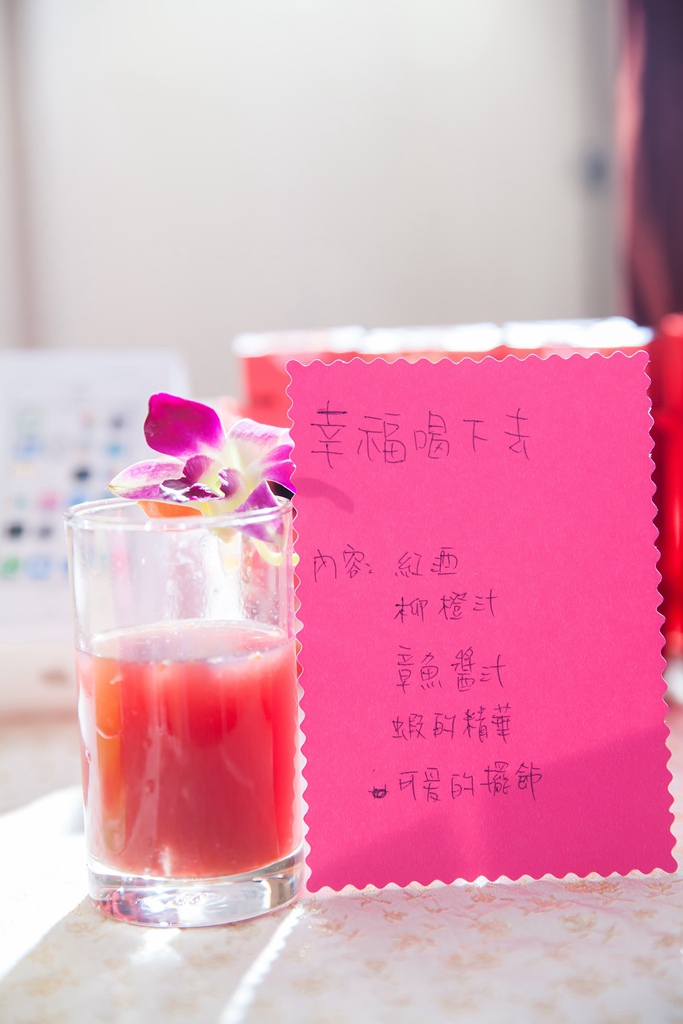 幸福喝下去
內容: 紅酒
柳橙汁
章魚醬汁
蝦的精華
可愛的擺飾